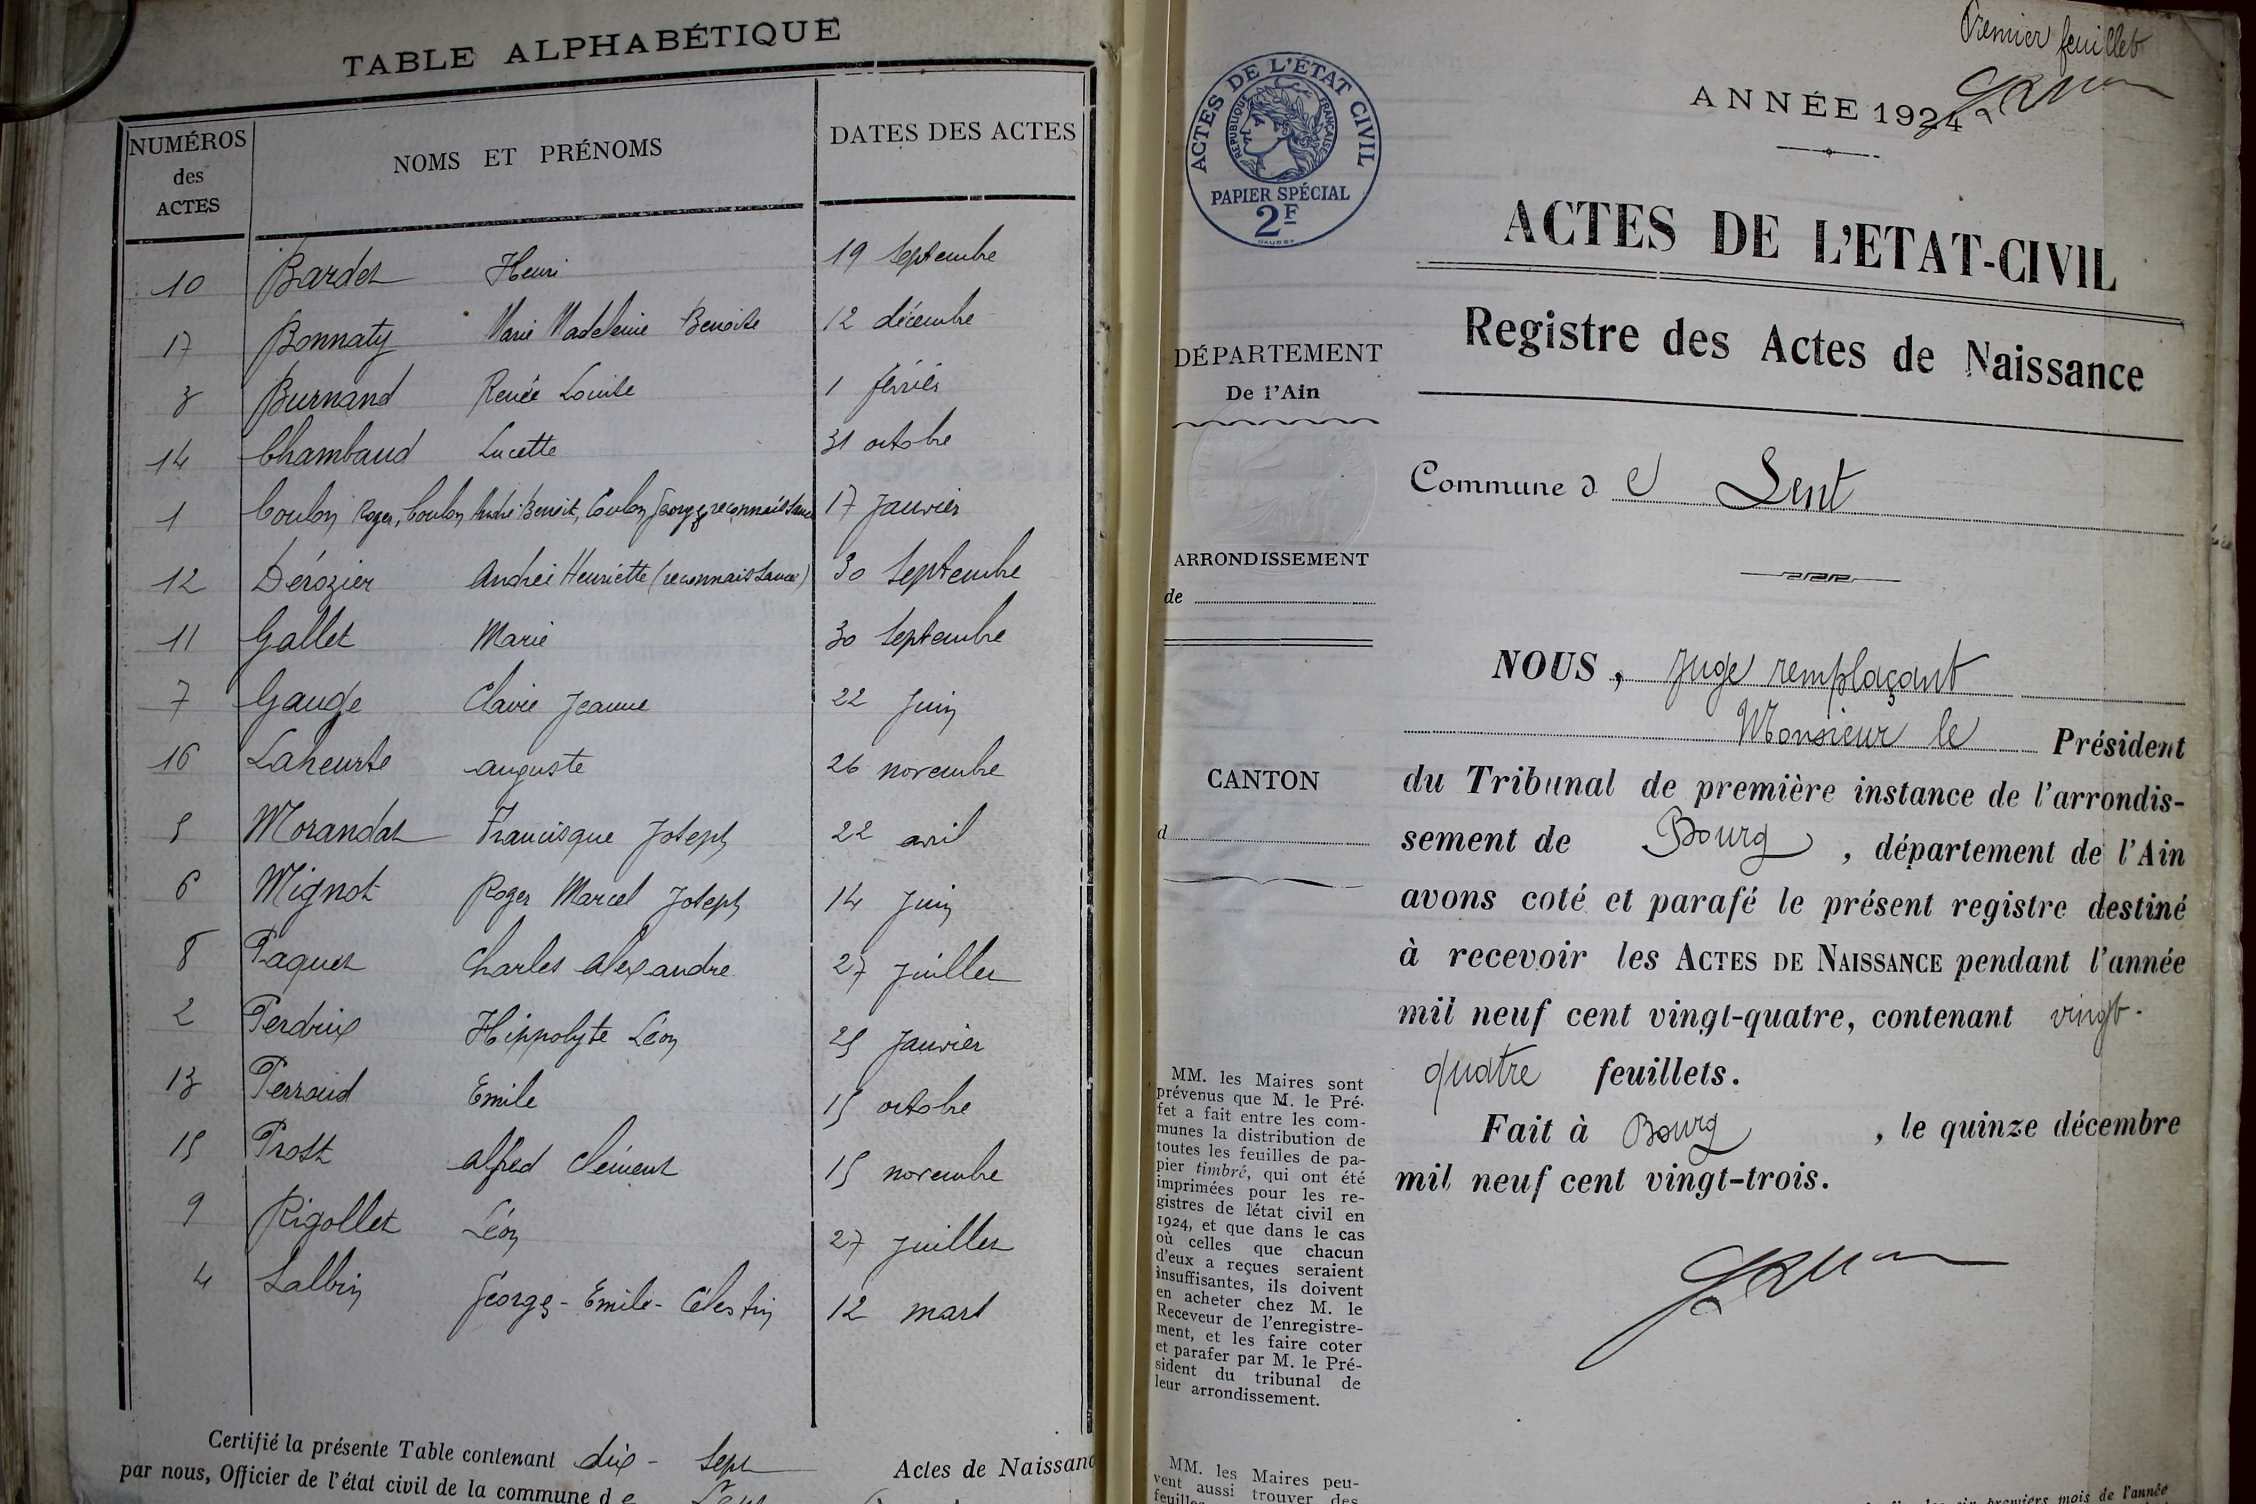 TABLE ALPHABÉTIQUE
NUMÉROS des ACTES NOMS ET PRÉNOMS DATES DES ACTES
10 Bardet Henri 19 Septembre
17 Bonnaty Marie Madeleine Benoite 12 décembre
3 Burnand Renée Louise 1 février
14 Chambaud Lucette 31 octobre
1 Coulon Roger, Coulon André Benoit, Coulon Georges reconnaissance 17 Janvier
12 Dérozier Andrée Henriette (reconnaissance) 30 Septembre
11 Gallet Marie 30 Septembre
7 Gauge Claire Jeanne 22 Juin
16 Laheurte auguste 26 novembre
5 Morandat Francisque Joseph 22 avril
6 Mignot Roger Marcel Joseph 14 Juin
8 Paquet Charles alexandre 27 Juillet
2 Perdrix Hippolyte Léon 25 Janvier
13 Perraud Emile 15 octobre
15 Prost alfred clément 15 novembre
9 Rigollet Léon 27 Juillet
4 Salbin Georges-Emile-Célestin 12 mars
Certifié la présente Table contenant dix-sept Actes de Naissanc
par nous, Officier de l'état civil de la commune de
Premier feuillet
ACTES DE L'ÉTAT CIVIL
RÉPUBLIQUE FRANÇAISE
PAPIER SPÉCIAL
2F
ANNÉE 1924
ACTES DE L'ETAT-CIVIL
Registre des Actes de Naissance
DÉPARTEMENT
De l'Ain
Commune de Lent
ARRONDISSEMENT
de
CANTON
d
NOUS, Juge remplaçant
Monsieur le Président
du Tribunal de première instance de l'arrondis-
sement de Bourg, département de l'Ain
avons coté et parafé le présent registre destiné
à recevoir les ACTES DE NAISSANCE pendant l'année
mil neuf cent vingt-quatre, contenant vingt-
quatre feuillets.
Fait à Bourg, le quinze décembre
mil neuf cent vingt-trois.
MM. les Maires sont
prévenus que M. le Pré-
fet a fait entre les com-
munes la distribution de
toutes les feuilles de pa-
pier timbré, qui ont été
imprimées pour les re-
gistres de l'état civil en
1924, et que dans le cas
où celles que chacun
d'eux a reçues seraient
insuffisantes, ils doivent
en acheter chez M. le
Receveur de l'enregistre-
ment, et les faire coter
et parafer par M. le Pré-
sident du tribunal de
leur arrondissement.
MM. les Maires peu-
vent aussi trouver des
feuilles
premiers mois de l'année